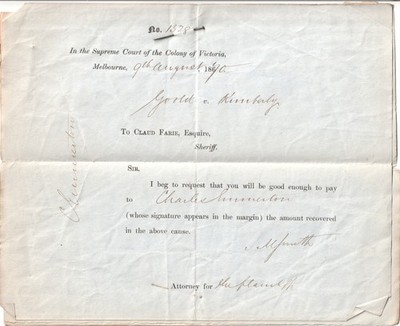 No. 1578
In the Supreme Court of the Colony of Victoria,
Melbourne, 9th August 186
Goold v. Kimberly
To CLAUD FARIE, Esquire,
Sheriff.
SIR,
I beg to request that you will be good enough to pay
to Charles
(whose signature appears in the margin) the amount recovered
in the above cause.
Attorney for the plaintiff